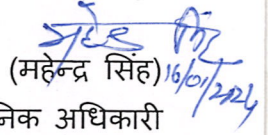 महेन्द्र सिंह
(महेन्द्र सिंह) 16/01/2024
निक अधिकारी